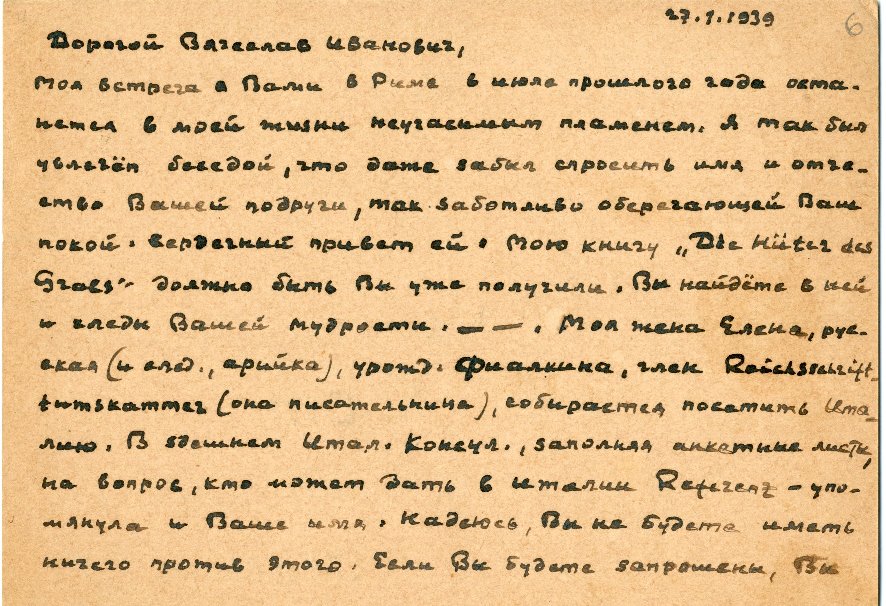 27.1.1939
6
Дорогой Вячеслав Иванович,
Моя встреча с Вами в Риме в июле прошлого года оста-
нется в моей жизни неугасимым пламенем. Я так был
увлечён беседой, что даже забыл спросить имя и отче-
ство Вашей подруги, так заботливо оберегающей Ваш
покой. Сердечный привет ей. Мою книгу „Die Hüter des
Grals" должно быть Вы уже получили. Вы найдёте в ней
и следы Вашей мудрости. — — . Моя жена Елена, рус-
ская (и след., арийка), урожд. Фиалкина, член Reichsschrift-
tumskammer (она писательница), собирается посетить Ита-
лию. В здешнем Итал. Консул., заполняя анкетные листы,
на вопрос, кто может дать в Италии Referenz – упо-
мянула и Ваше имя. Надеюсь, Вы не будете иметь
ничего против этого. Если Вы будете запрошены, Вы